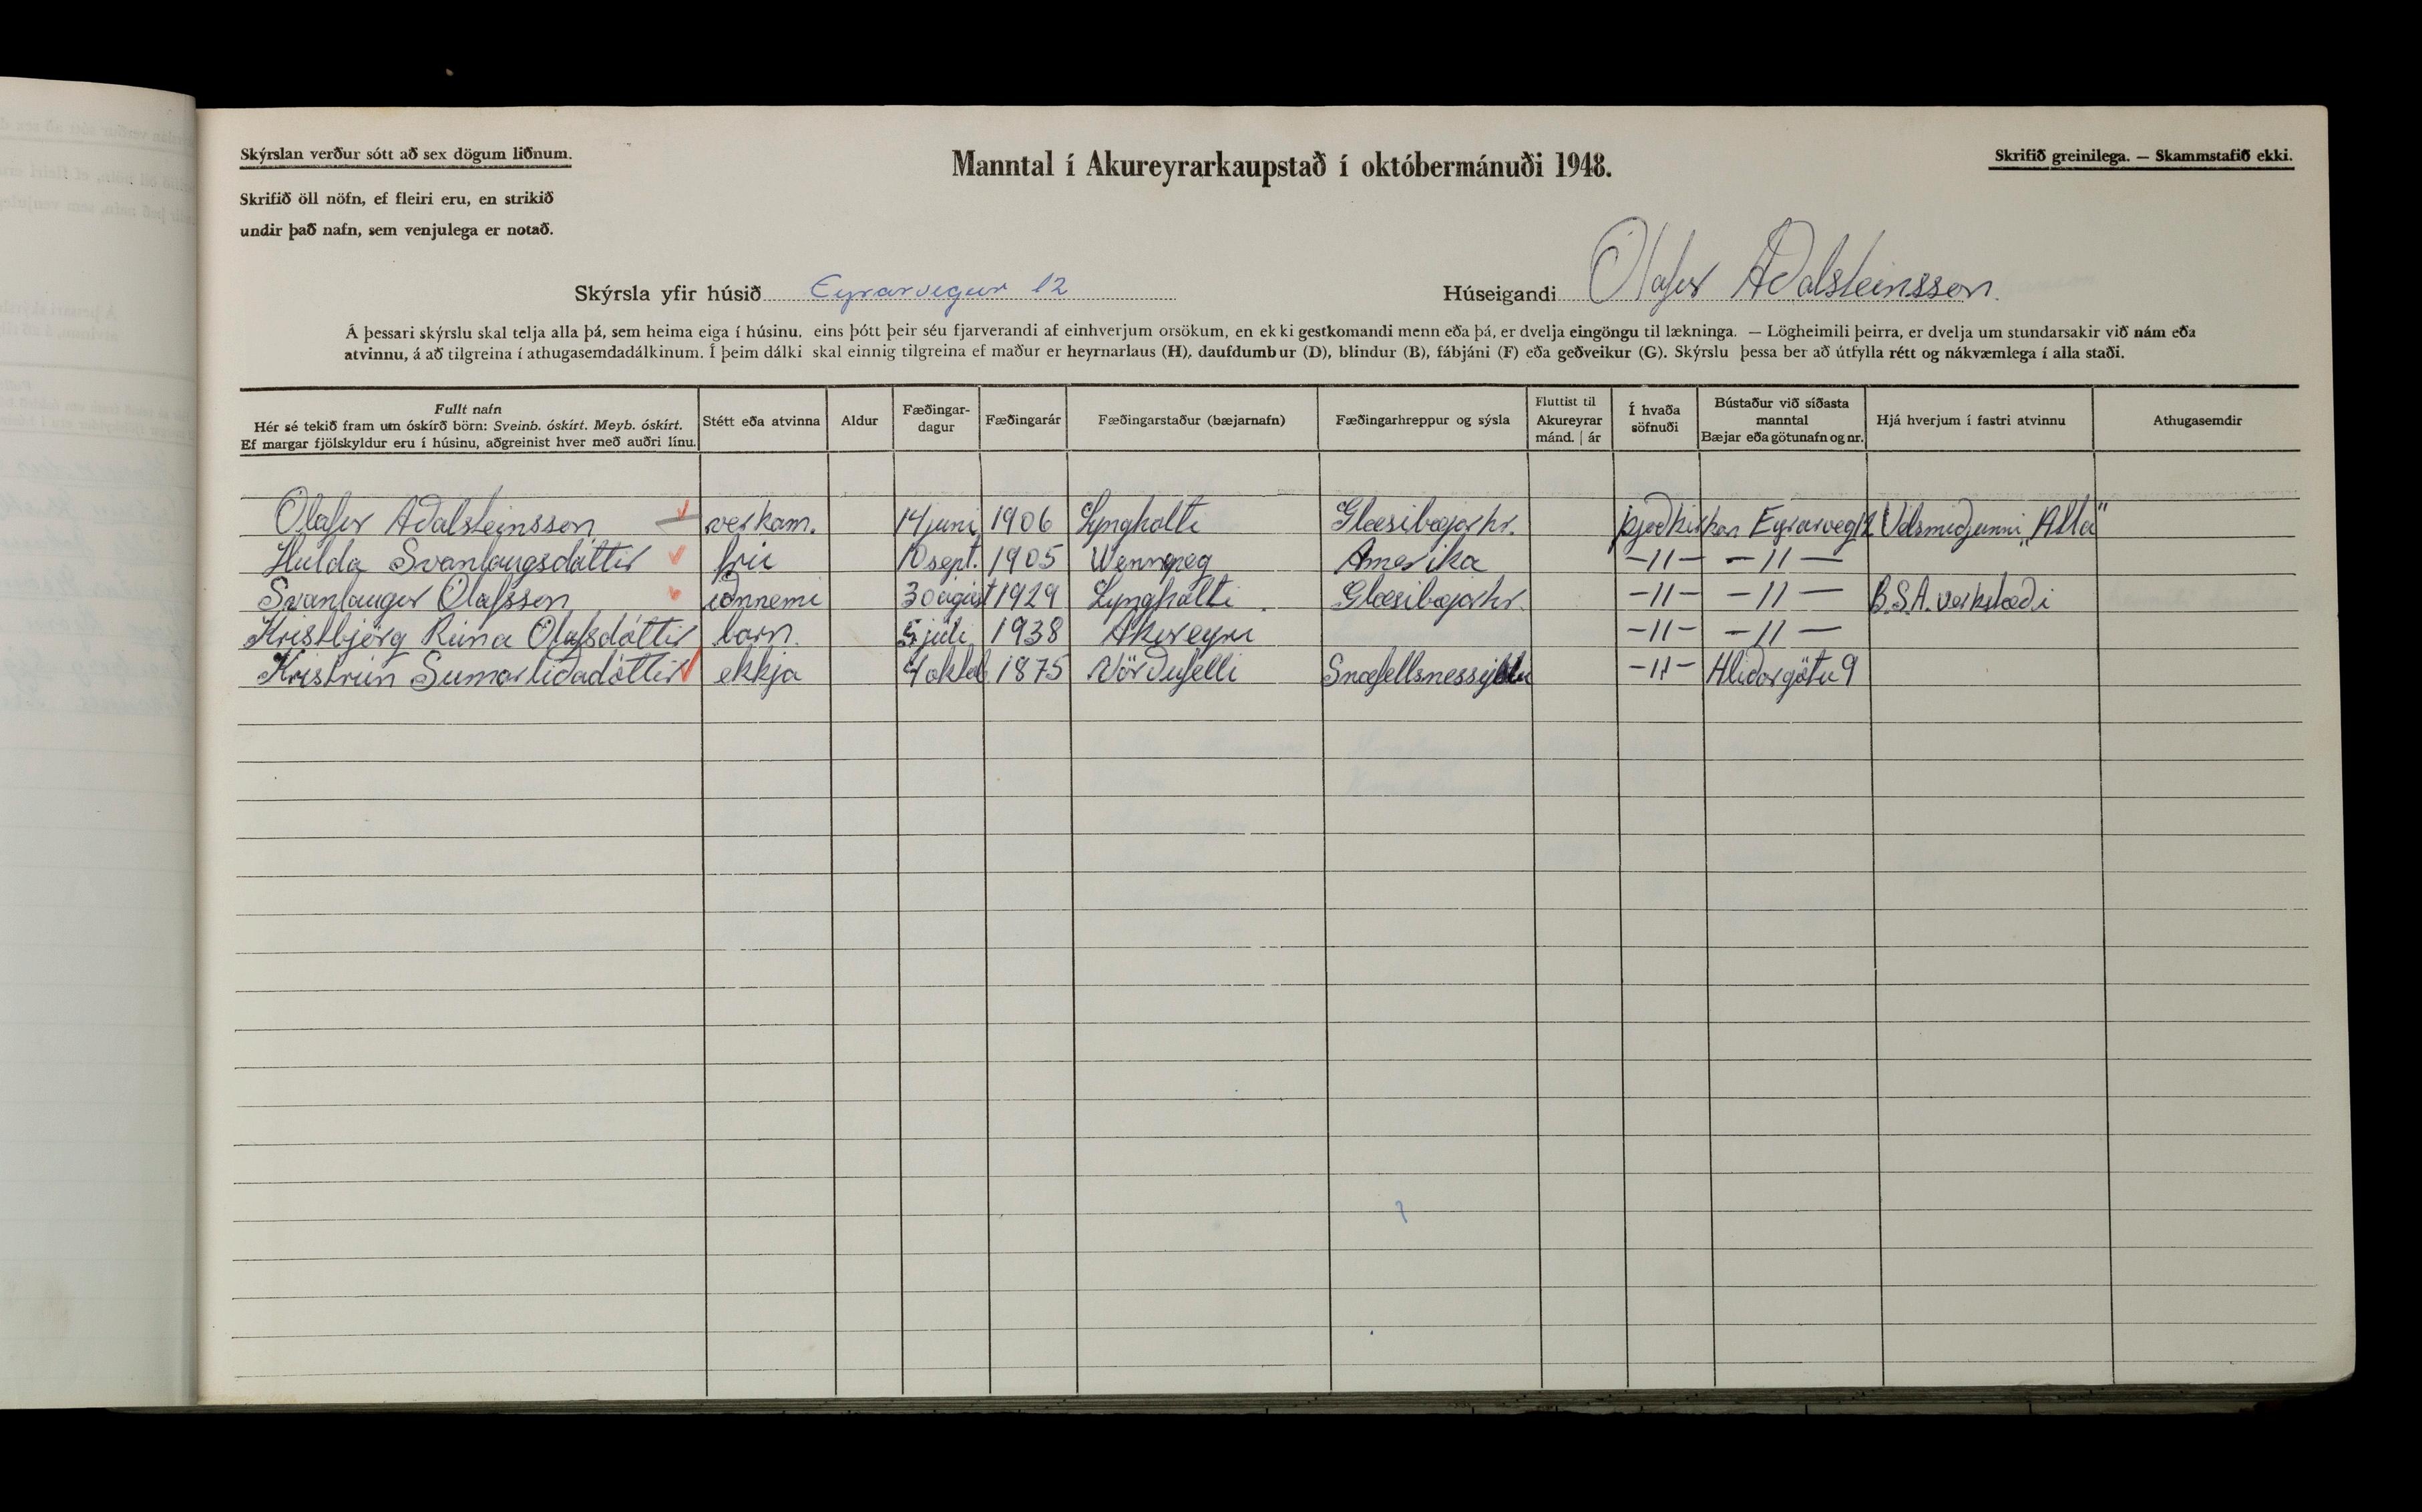 Skýrslan verður sótt að sex dögum liðnum.
Manntal í Akureyrarkaupstað í októbermánuði 1948.
Skrifið greinilega. — Skammstafið ekki.
Skrifið öll nöfn, ef fleiri eru, en strikið
undir það nafn, sem venjulega er notað.
Skýrsla yfir húsið Eyrarvegur 12
Húseigandi Ólafur Aðalsteinsson.
Á þessari skýrslu skal telja alla þá, sem heima eiga í húsinu, eins þótt þeir séu fjarverandi af einhverjum orsökum, en ekki gestkomandi menn eða þá, er dvelja eingöngu til lækninga. — Lögheimili þeirra, er dvelja um stundarsakir við nám eða
atvinnu, á að tilgreina í athugasemdadálkinum. Í þeim dálki skal einnig tilgreina ef maður er heyrnarlaus (H), daufdumbur (D), blindur (B), fábjáni (F) eða geðveikur (G). Skýrslu þessa ber að útfylla rétt og nákvæmlega í alla staði.
Fullt nafn
Hér sé tekið fram um óskírð börn: Sveinb. óskírt. Meyb. óskírt.
Ef margar fjölskyldur eru í húsinu, aðgreinist hver með auðri línu.
Stétt eða atvinna
Aldur
Fæðingar-
dagur
Fæðingarár
Fæðingarstaður (bæjarnafn)
Fæðingarhreppur og sýsla
Fluttist til
Akureyrar
mánd. | ár
Í hvaða
söfnuði
Bústaður við síðasta
manntal
Bæjar eða götunafn og nr.
Hjá hverjum í fastri atvinnu
Athugasemdir
Ólafur Aðalsteinsson verkam. 14 júní 1906 Lyngholti Glæsibæjarhr. þjóðkirkan Eyrarveg 12 Vélsmiðjunni „Atla"
Hulda Svanlaugsdóttir frú 10 sept. 1905 Wennepeg Amerika —11— —11—
Svanlaugur Ólafsson iðnnemi 30 ágúst 1929 Lyngholti Glæsibæjarhr. —11— —11— B.S.A. verkstæði
Kristbjörg Rúna Ólafsdóttir barn. 5 júlí 1938 Akureyri —11— —11—
Kristrún Sumarliðadóttir ekkja 4 oktob 1875 Vörðufelli Snæfellsnessýslu —11— Hlíðargötu 9